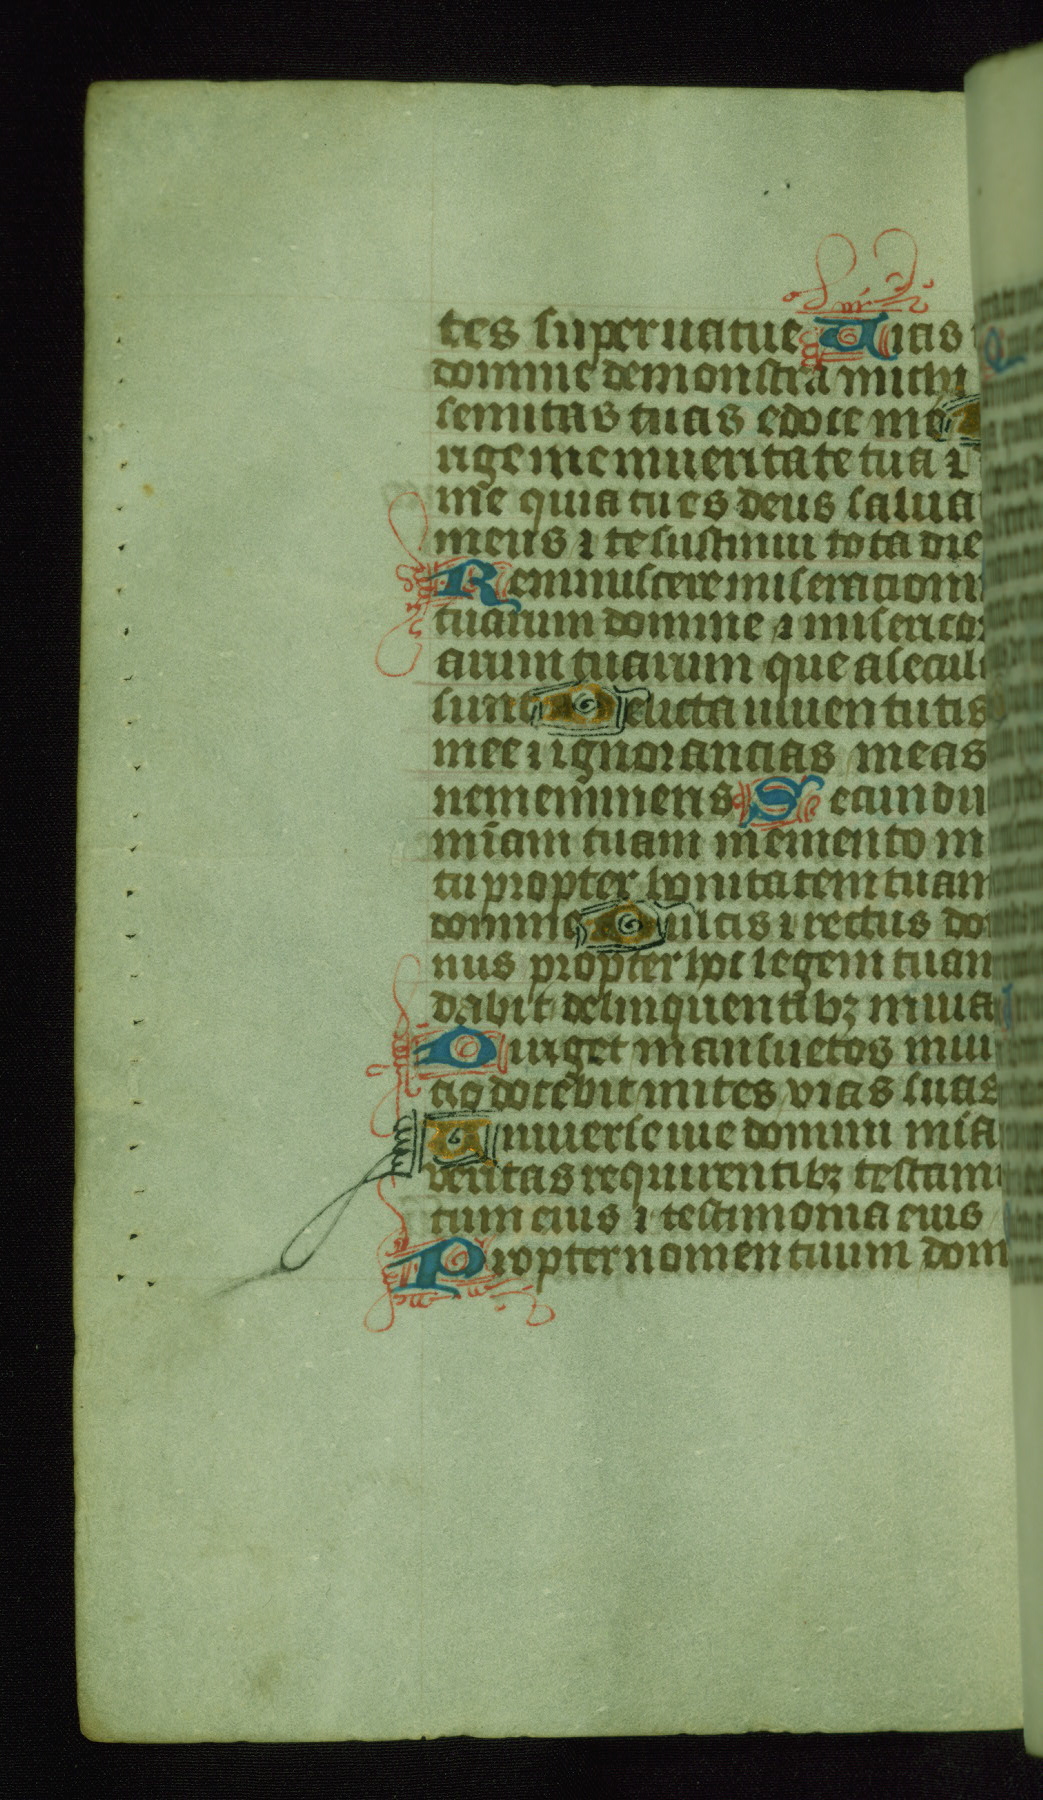 tes superuacue Uias
domine demonstra michi
semitas tuas edoce me
rige me in ueritate tua ⁊
me quia tu es deus salua
meus ⁊ te sustinui tota die
Reminiscere miserationu
tuarum domine ⁊ miserico
arum tuarum que a secul
sunt Delicta iuuentutis
mee ⁊ ignorancias meas
ne memineris Secundu
mīam tuam memento m
tu propter bonitatem tuam
domine Dulcis ⁊ rectus do
nus propter hoc legem tuam
dabit delinquentibꝫ in uia
Diriget mansuetos in iu
cio docebit mites vias suas
Uniuerse uie domini mīa
veritas requirentibꝫ testam
tum eius ⁊ testimonia eius
Propter nomen tuum dom